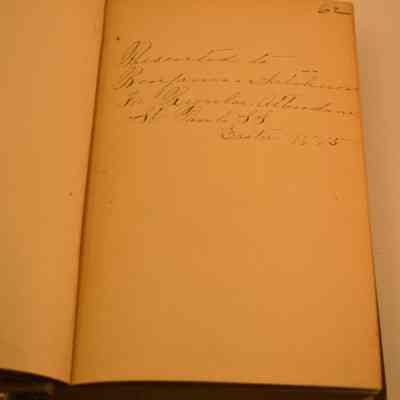 62
Presented to
Benjamin
For Regular Attendance
St Pauls SS
Easter